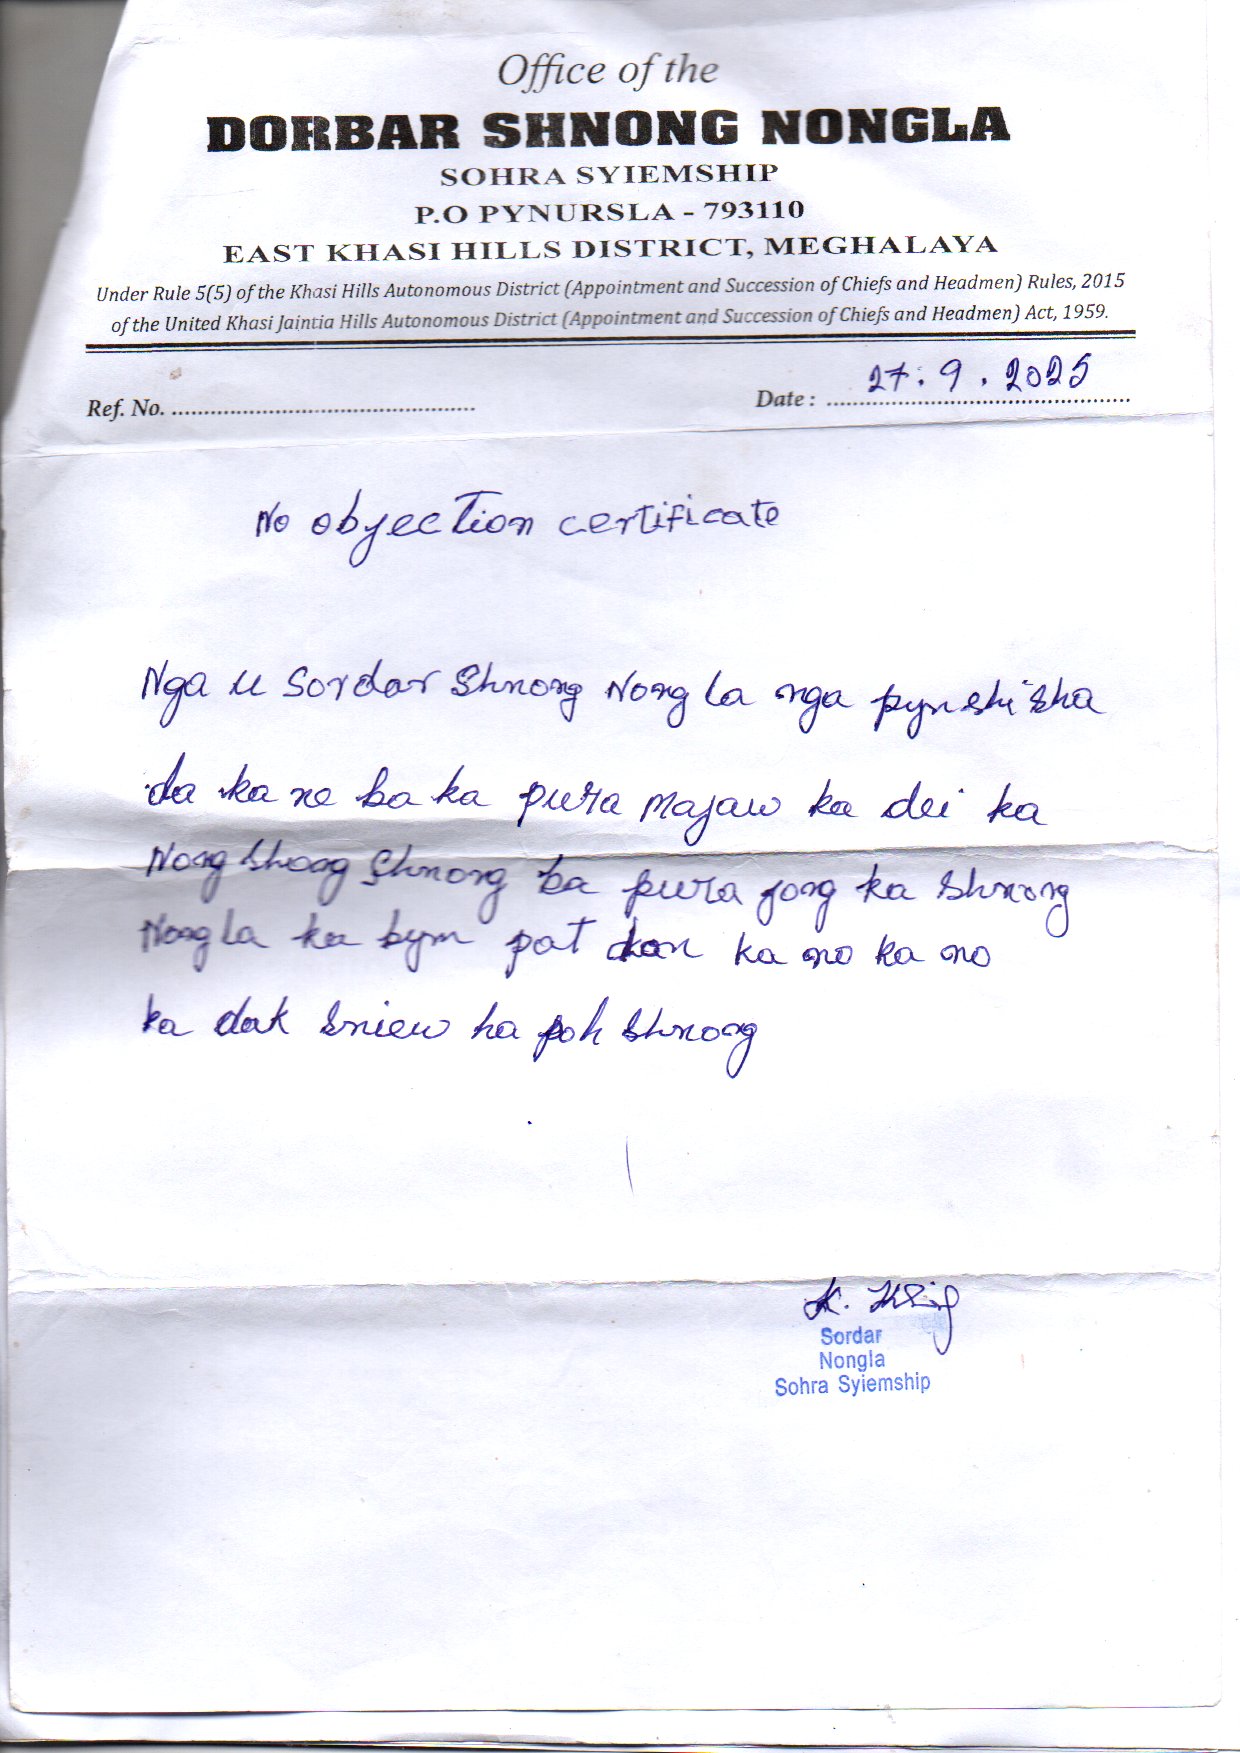 Office of the
DORBAR SHNONG NONGLA
SOHRA SYIEMSHIP
P.O PYNURSLA - 793110
EAST KHASI HILLS DISTRICT, MEGHALAYA
Under Rule 5(5) of the Khasi Hills Autonomous District (Appointment and Succession of Chiefs and Headmen) Rules, 2015
of the United Khasi Jaintia Hills Autonomous District (Appointment and Succession of Chiefs and Headmen) Act, 1959.
Ref. No. ............................................... Date : 27.9.2025
No obyection certificate
Nga u Sordar Shnong Nongla nga pynshisha
da ka ne ba ka pura Majaw ka dei ka
Nongshong Shnong ba pura jong ka Shnong
Nongla ka bym pat don ka no ka no
ka dak sniew ha poh Shnong
Sordar
Nongla
Sohra Syiemship